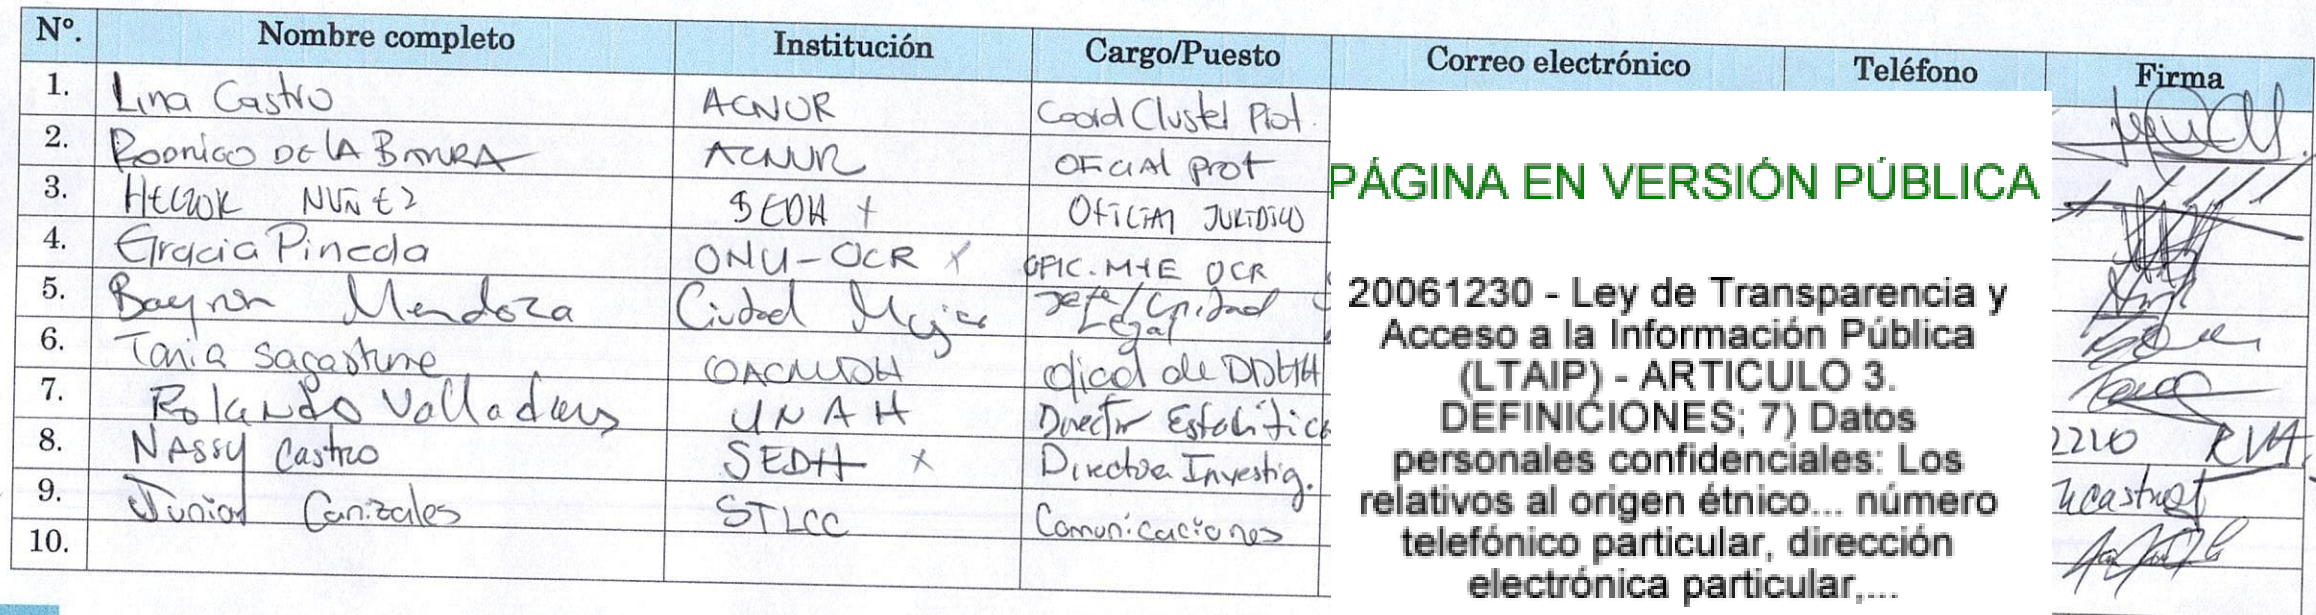 Nº. Nombre completo Institución Cargo/Puesto Correo electrónico Teléfono Firma
1. Lina Castro ACNUR Coord Cluster Prot.
2. Rodrigo DE LA BARRA ACNUR OFICIAL prot
3. HECTOR NUÑEZ SEDH x OFICIAL JURIDICO
4. Gracia Pineda ONU-OCR x OFIC. M+E OCR
5. Bayron Mendoza Ciudad Mujer Jefe/Unidad Legal
6. Tania Sagastume OACNUDH oficial de DDHH
7. Rolando Valladares UNAH Director Estadística
8. NASSY Castro SEDH x Directora Investig.
9. Junior Canizales STLCC Comunicaciones
10.
PÁGINA EN VERSIÓN PÚBLICA
20061230 - Ley de Transparencia y
Acceso a la Información Pública
(LTAIP) - ARTICULO 3.
DEFINICIONES; 7) Datos
personales confidenciales: Los
relativos al origen étnico... número
telefónico particular, dirección
electrónica particular,...
2210